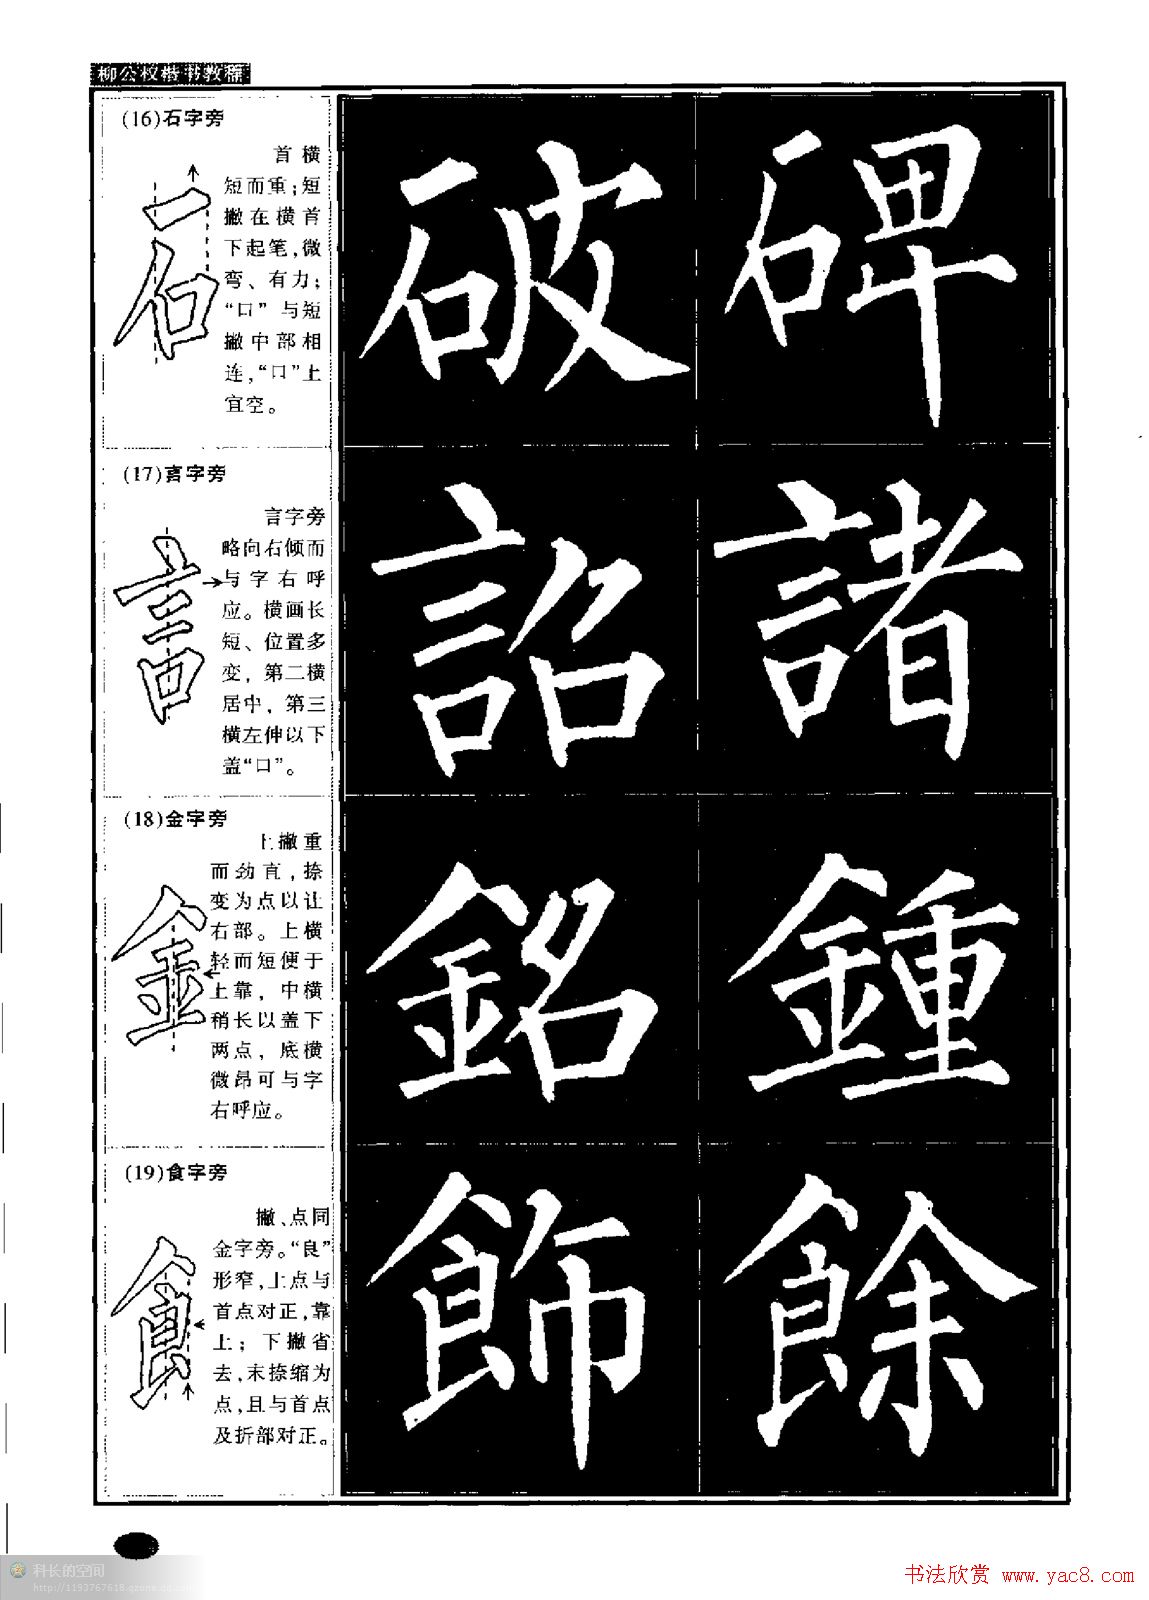 柳公权楷书教程
(16)石字旁
石
首横
短而重;短
撇在横首
下起笔,微
弯、有力;
“口”与短
撇中部相
连,“口”上
宜空。
破 碑
(17)言字旁
言
言字旁
略向右倾而
与字右呼
应。横画长
短、位置多
变,第二横
居中,第三
横左伸以下
盖“口”。
詔 諸
(18)金字旁
金
上撇重
而劲直,捺
变为点以让
右部。上横
轻而短便于
上靠,中横
稍长以盖下
两点,底横
微昂可与字
右呼应。
銘 鍾
(19)食字旁
食
撇、点同
金字旁。“良”
形窄,上点与
首点对正,靠
上;下撇省
去,末捺缩为
点,且与首点
及折部对正。
飾 餘
科长的空间
http://1193767618.qzone.qq.com
书法欣赏 www.yac8.com